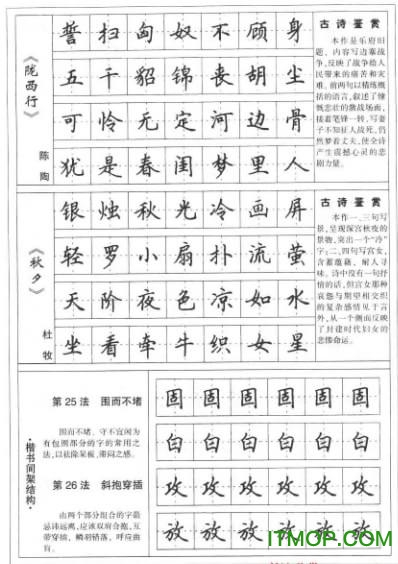 《陇西行》
陈陶
誓扫匈奴不顾身
五千貂锦丧胡尘
可怜无定河边骨
犹是春闺梦里人
古诗鉴赏
本作是乐府旧
题，内容写边塞战
争，反映了战争给人
民带来的痛苦和灾
难。前两句以精练概
括的语言，叙述了慷
慨悲壮的激战场面，
接着笔锋一转，写妻
子不知征人战死，仍
然梦着丈夫，使全诗
产生震撼心灵的悲
剧力量。
《秋夕》
杜牧
银烛秋光冷画屏
轻罗小扇扑流萤
天阶夜色凉如水
坐看牵牛织女星
古诗鉴赏
本作一、三句写
景，呈现深宫秋夜的
景物，突出一个“冷”
字；二、四句写宫女，
含蓄蕴藉，耐人寻
味。诗中没有一句抒
情的话，但宫女那种
哀怨与期望相交织
的复杂感情见于言
外，从一个侧面反映
了封建时代妇女的
悲惨命运。
·楷书间架结构·
第25法 围而不堵
围而不堵。守不宜闲为
有包围部分的字的常用之
法，以祛除呆板、滞闷之感。
固固固固固固
白白白白白白
第26法 斜抱穿插
由两个部分组合的字最
忌讳远离，应该双肩合抱，互
带穿插，鳞羽错落，呼应曲
攻攻攻攻攻攻
放放放放放放
ITMOP.COM